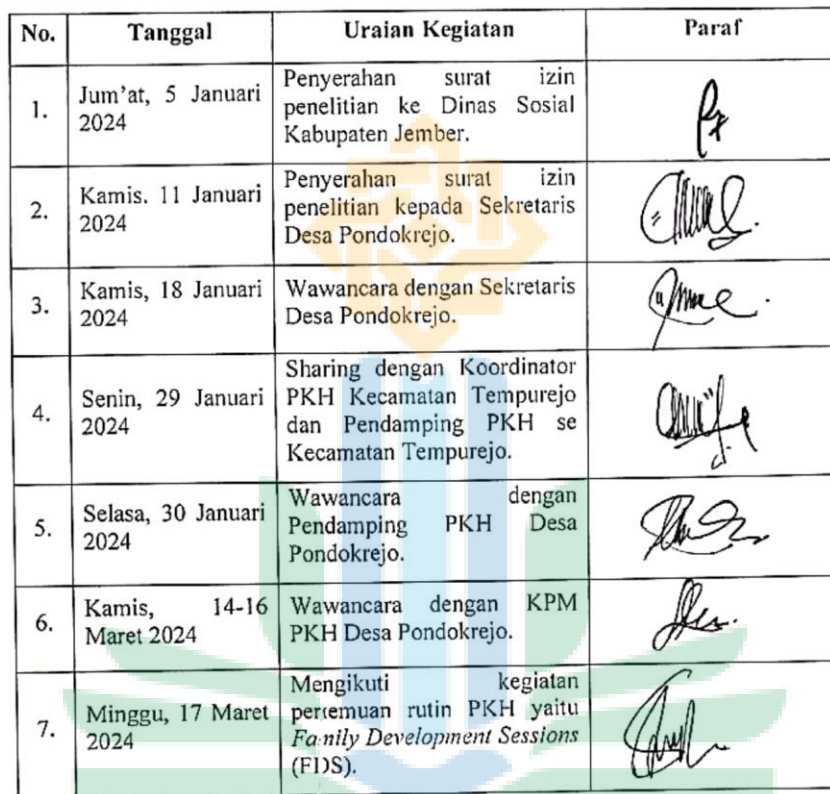 No. Tanggal Uraian Kegiatan Paraf
1. Jum'at, 5 Januari 2024
Penyerahan surat izin
penelitian ke Dinas Sosial
Kabupaten Jember.
2. Kamis. 11 Januari 2024
Penyerahan surat izin
penelitian kepada Sekretaris
Desa Pondokrejo.
3. Kamis, 18 Januari 2024
Wawancara dengan Sekretaris
Desa Pondokrejo.
4. Senin, 29 Januari 2024
Sharing dengan Koordinator
PKH Kecamatan Tempurejo
dan Pendamping PKH se
Kecamatan Tempurejo.
5. Selasa, 30 Januari 2024
Wawancara dengan
Pendamping PKH Desa
Pondokrejo.
6. Kamis, 14-16 Maret 2024
Wawancara dengan KPM
PKH Desa Pondokrejo.
7. Minggu, 17 Maret 2024
Mengikuti kegiatan
pertemuan rutin PKH yaitu
Family Development Sessions
(FDS).